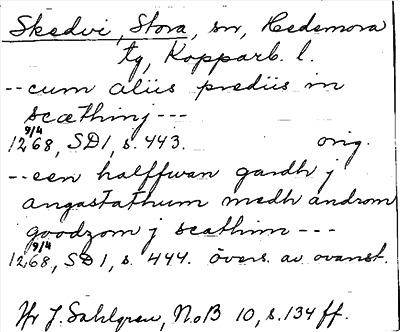 Skedvi, Stora, sn, Hedemora
tg, Kopparb. l.
--cum aliis prediis in
scæthinj ---
9/4
1268, SD1, s. 443. orig.
--een halffwan gardh j
angastathum medh androm
goodzom j scathim ---
9/4
1268, SD1, s. 444. övers. av ovanst.
Hr J. Sahlgren, NoB 10, s. 134 ff.